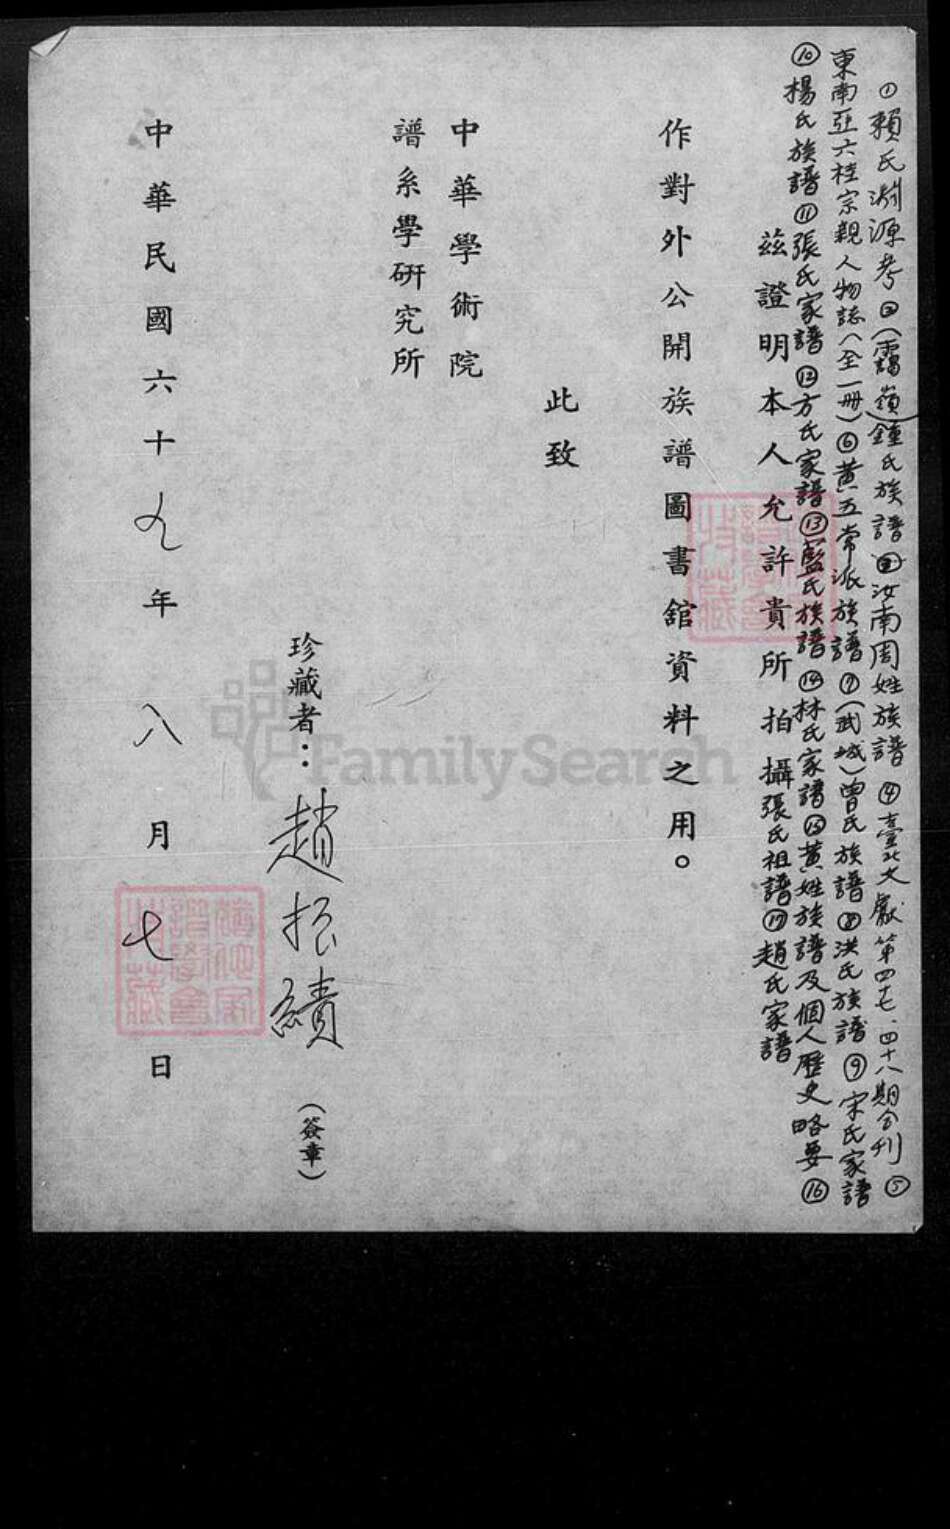 ①賴氏淵源考②(霭嶺)鍾氏族譜③汝南周姓族譜④臺北文獻第四七、四十八期合刊⑤
東南亞六桂宗親人物誌(全一冊)⑥黃五常派族譜⑦(武城)曾氏族譜⑧洪氏族譜⑨宋氏家譜
⑩楊氏族譜⑪張氏家譜⑫方氏家譜⑬藍氏族譜⑭林氏家譜⑮黃姓族譜及個人歷史略要⑯
茲證明本人允許貴所拍攝張氏祖譜⑰趙氏家譜
作對外公開族譜圖書館資料之用。
此致
中華學術院
譜系學研究所
珍藏者：趙振績(簽章)
中華民國六十九年八月七日
FamilySearch